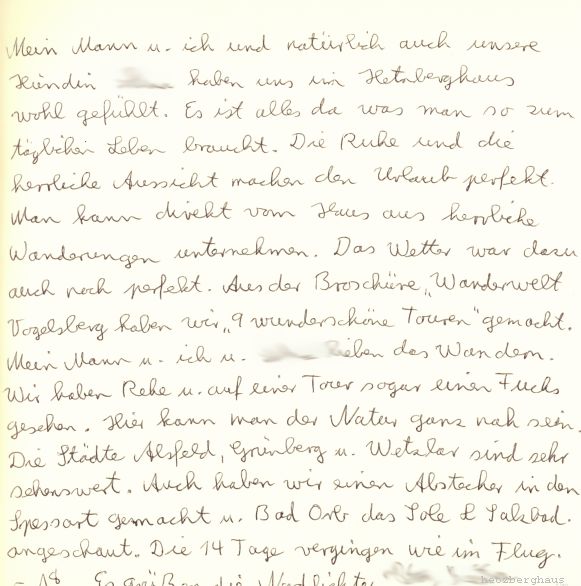 Mein Mann u. ich und natürlich auch unsere
Hündin haben uns im Hetzberghaus
wohl gefühlt. Es ist alles da was man so zum
täglichen Leben braucht. Die Ruhe und die
herrliche Aussicht machen den Urlaub perfekt.
Man kann direkt vom Haus aus herrliche
Wanderungen unternehmen. Das Wetter war dazu
auch noch perfekt. Aus der Broschüre „Wanderwelt
Vogelsberg haben wir „9 wunderschöne Touren" gemacht.
Mein Mann u. ich u. lieben das Wandern.
Wir haben Rehe u. auf einer Tour sogar einen Fuchs
gesehen. Hier kann man der Natur ganz nah sein.
Die Städte Alsfeld, Grünberg u. Wetzlar sind sehr
sehenswert. Auch haben wir einen Abstecher in den
Spessart gemacht u. Bad Orb das Sole & Salzbad.
angeschaut. Die 14 Tage vergingen wie im Flug.
Es grüßen die Nordlichter